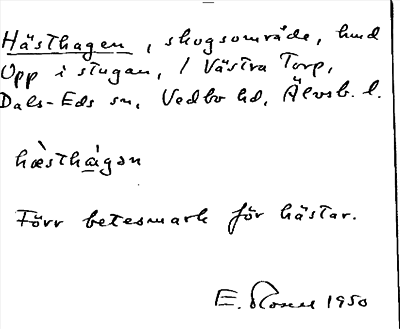 Hästhagen, skogsområde, hmd
Upp i stugan, / Västra Torp,
Dals-Eds sn, Vedbo hd, Älvsb. l.
hæ̀sthá̲gan
Förr betesmark för hästar.
E. 1950